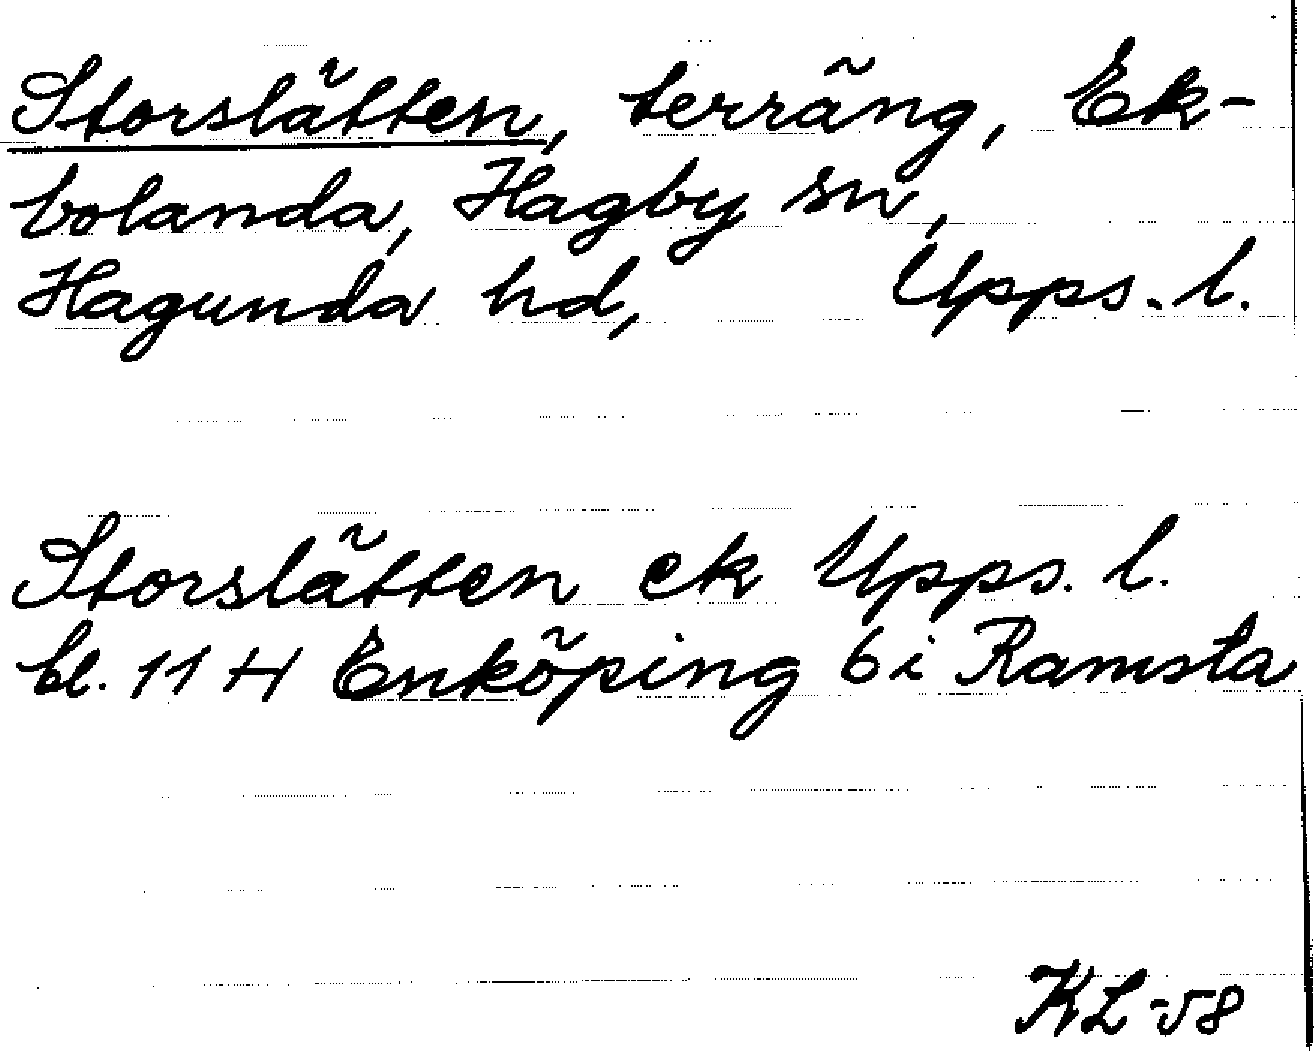 Storslätten, terräng, Ek-
bolanda, Hagby sn,
Hagunda hd, Upps. l.
Storslätten ek Upps. l.
bl. 11 H Enköping 6i Ramsta
KL-58